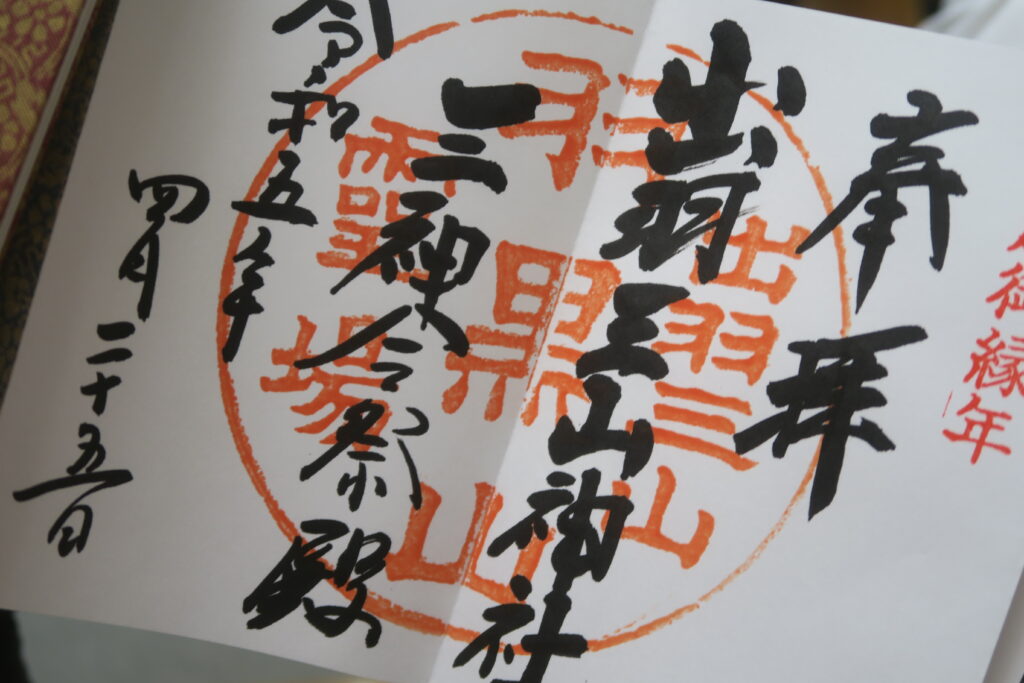 御縁年
奉拝
出羽三山神社
三神合祭殿
令和五年
四月二十五日
出羽三山
羽黒山
霊場